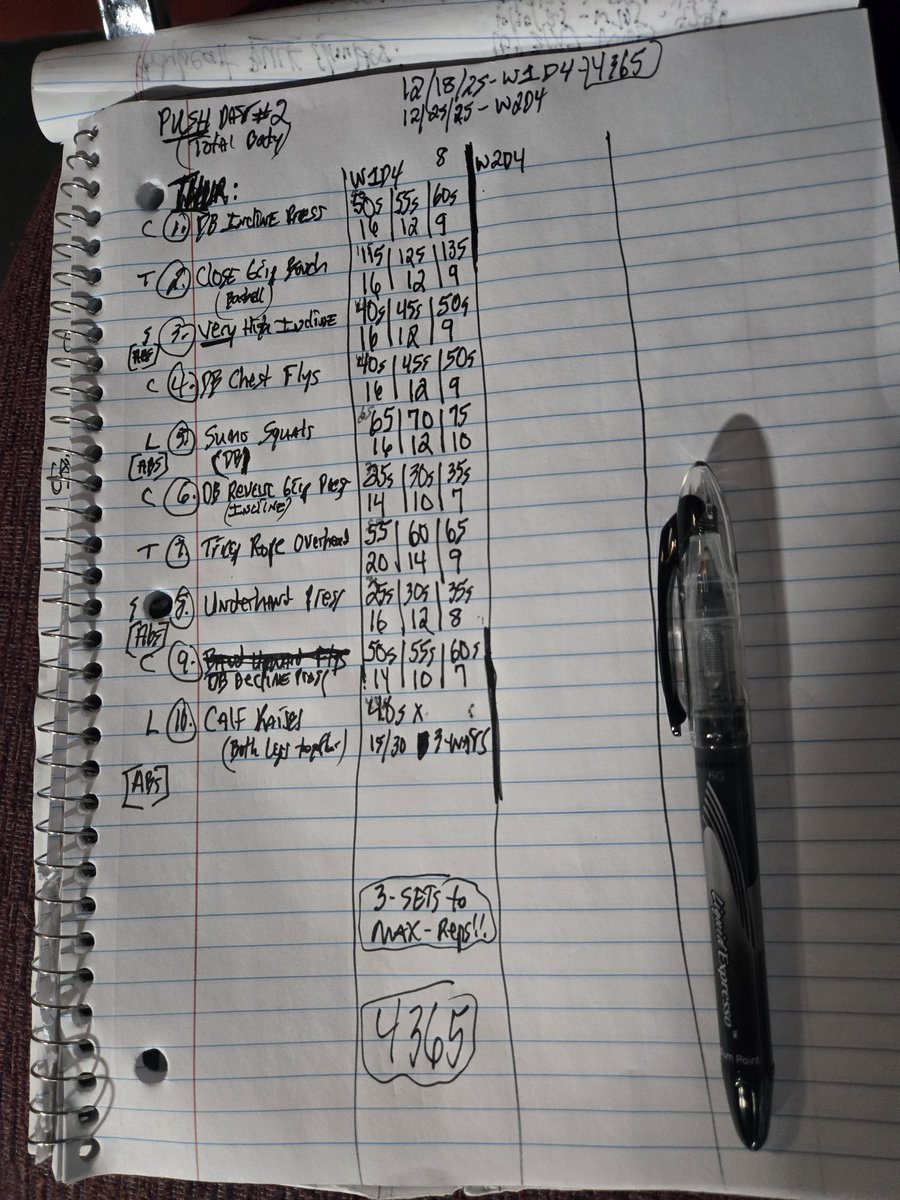 12/18/25-W1D4-4365
12/25/25-W2D4
PUSH DAY #2
(Total Body)
W1D4 8 W2D4
THUR:
C 1. DB Incline Press 50s 55s 60s
16 12 9
T 2. Close Grip Bench 115 125 135
(Barbell) 16 12 9
S 3. Very High Incline 40s 45s 50s
[ABS] 16 12 9
C 4. DB Chest Flys 40s 45s 50s
16 12 9
L 5. Sumo Squats 65 70 75
[ABS] (DB) 16 12 10
C 6. DB Reverse Grip Press 25s 30s 35s
(Incline) 14 10 7
T 7. Tricep Rope Overhead 55 60 65
20 14 9
S 8. Underhand Press 25s 30s 35s
[Abs] 16 12 8
C 9. 50s 55s 60s
DB Decline Press 14 10 7
L 10. Calf Raises 40s X
(Both legs together) 15/30 3-WAYS
[ABS]
3-SETS to
MAX-Reps!!
4365
Liquid Expresso